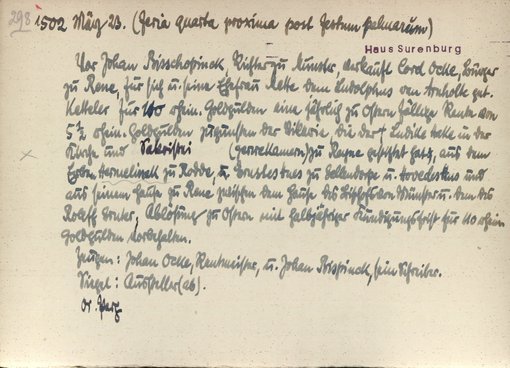 298 1502 März 23. (feria quarta proxima post festum palmarum)
Haus Surenburg
Vor Johan Bisschopinck Richter zu Münster, verkauft Cord Ocke, Bürger
zu Rene, für sich u. seine Ehefrau dem Ludolphus van gt.
Ketteler für 110 rhein. Goldgulden eine jährlich zu Ostern fällige Rente von
5 1/2 rhein. Goldgulden zugunsten der Vikarie, die der in der
Kirche und Sakristei (gerwekameren) zu Rayne gestiftet hat, aus dem
Erbe zu Rodde, u. zu und
aus seinem Hause zu Rene zwischen dem Hause des Bischofs von Münster u. dem des
Ablösung zu Ostern mit halbjähriger Kündigungsfrist für 110 rhein
Goldgulden vorbehalten.
Zeugen: Johan Ocke, Rentmeister, u. Johan Bispinck, sein Schreiber.
Siegel: Aussteller (ab).
Or. Perg.